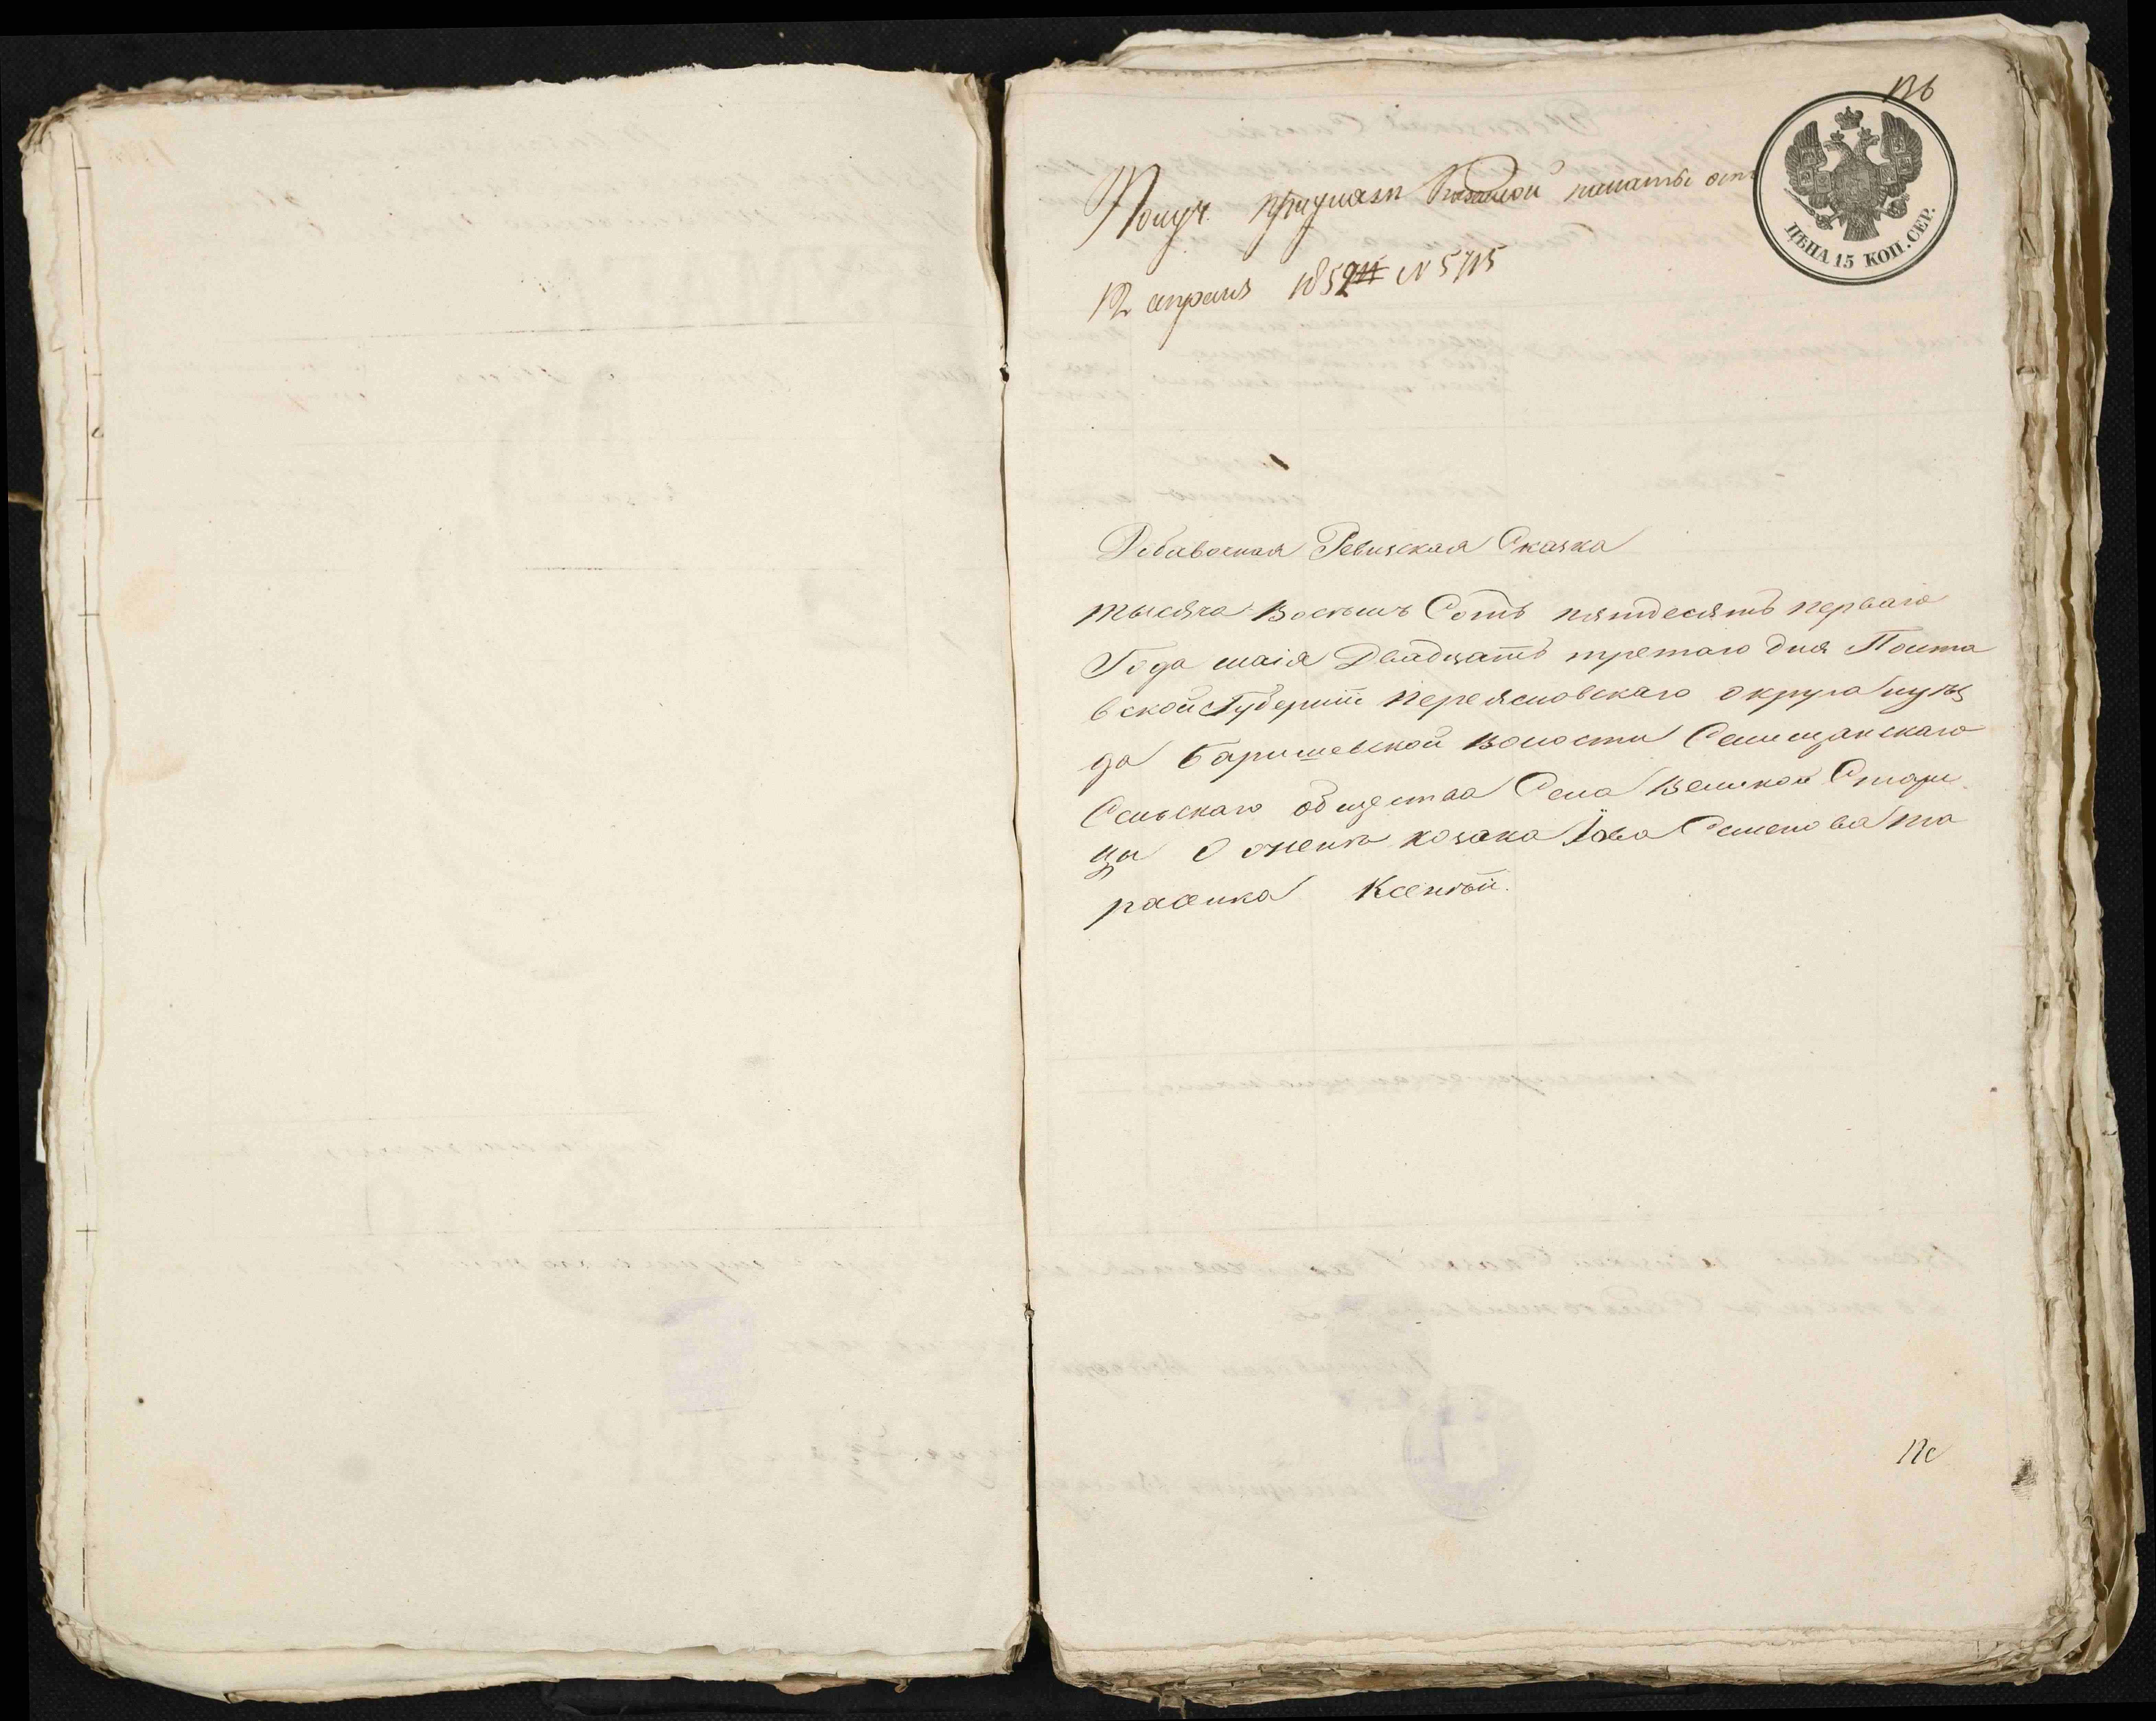 136
Получ. при указѣ Казенной палаты отъ
12 апреля 1852 N 5715
ЦѢНА 15 КОП. СЕР.
Добавочная Ревизская Сказка
тысяча восемь Сотъ пятдесятъ перваго
Года маія Двадцать третаго дня Полта
вской Губерніи Переясловскаго округа иуѣз
да Баришевской волости Селищанскаго
Сельскаго общества Села Великой Стари
цы О женѣ козака Іова Семенова та
расенка Ксеніи.